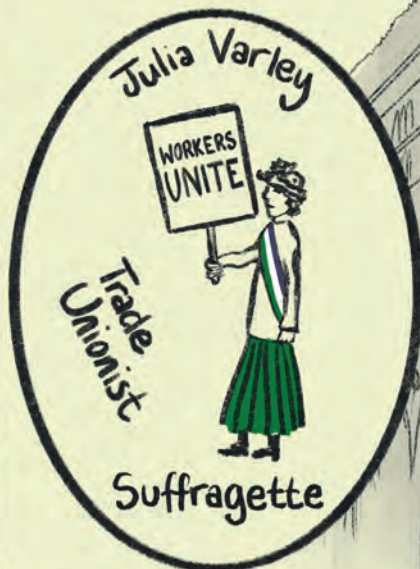 Julia Varley
WORKERS
UNITE
Trade
Unionist
Suffragette